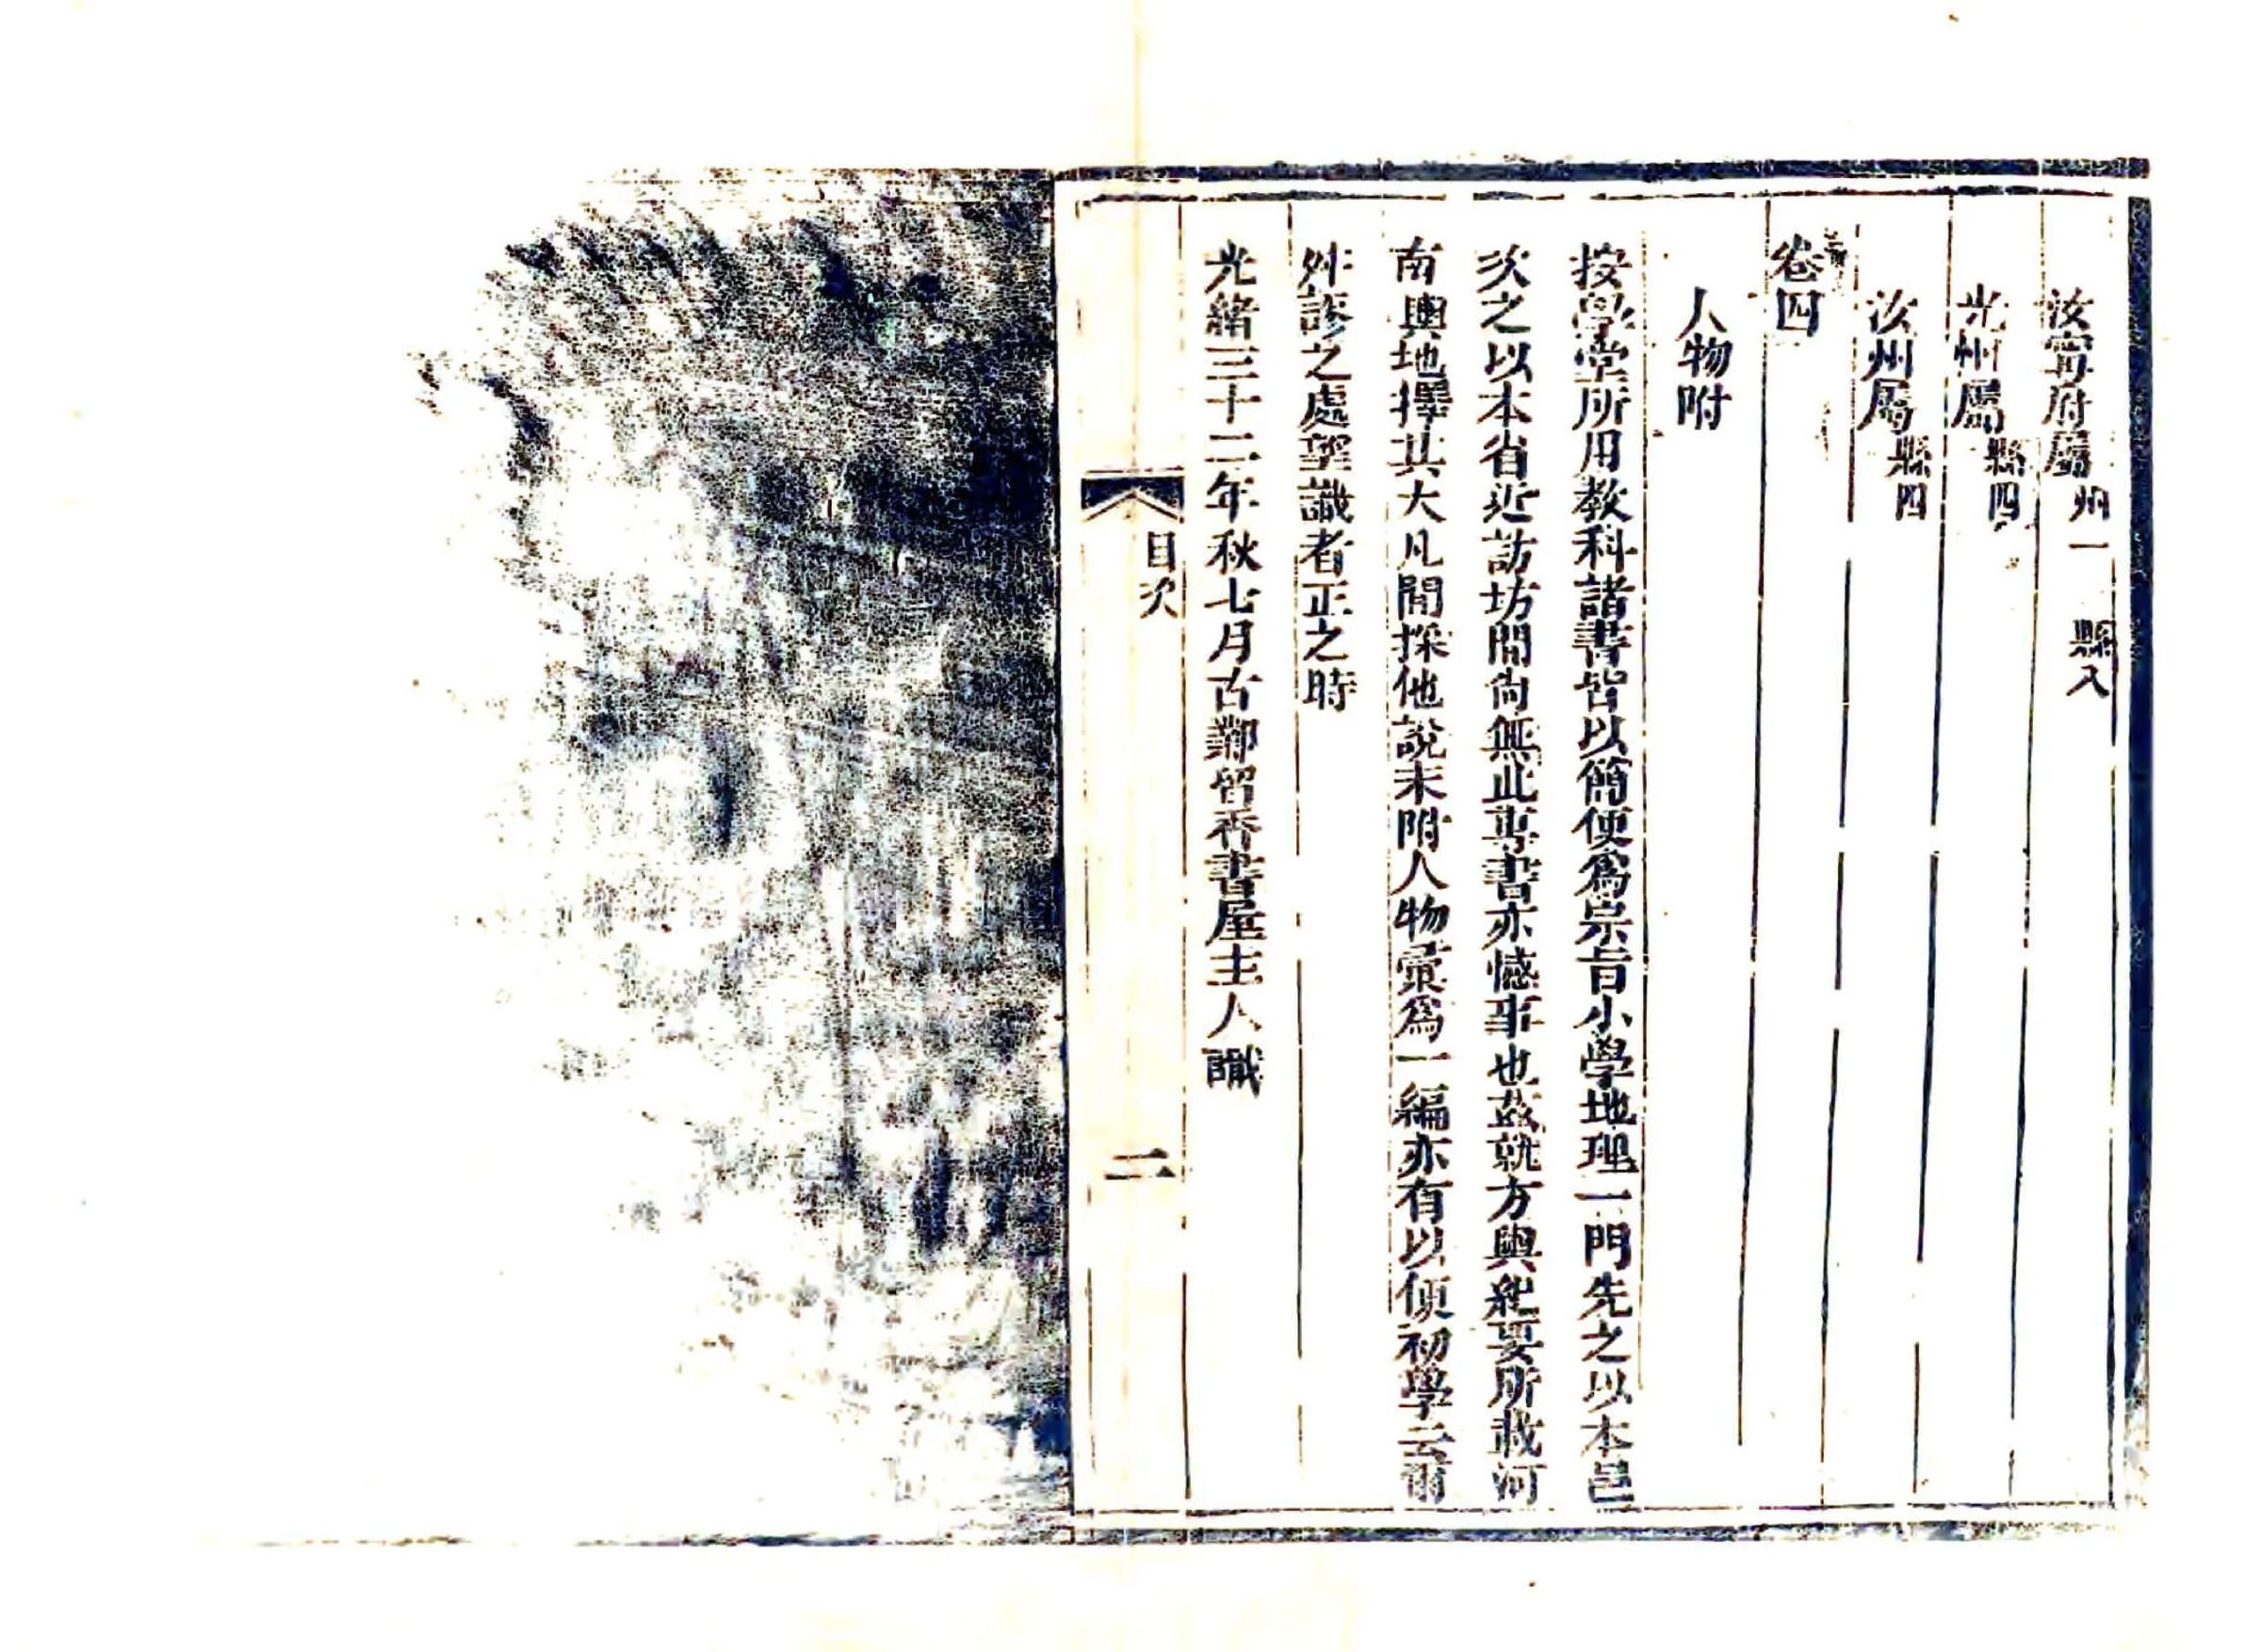 汝寧府屬州一 縣八
光州屬縣四
汝州屬縣四
卷四
人物附
按學堂所用教科諸書皆以簡便爲宗旨小學地理一門先之以本邑
次之以本省近訪坊間尙無此專書亦憾事也茲就方輿紀要所載河
南輿地擇其大凡間採他說末附人物彙爲一編亦有以便初學云爾
舛謬之處望識者正之時
光緒三十二年秋七月古鄴留香書屋主人識
目次
二